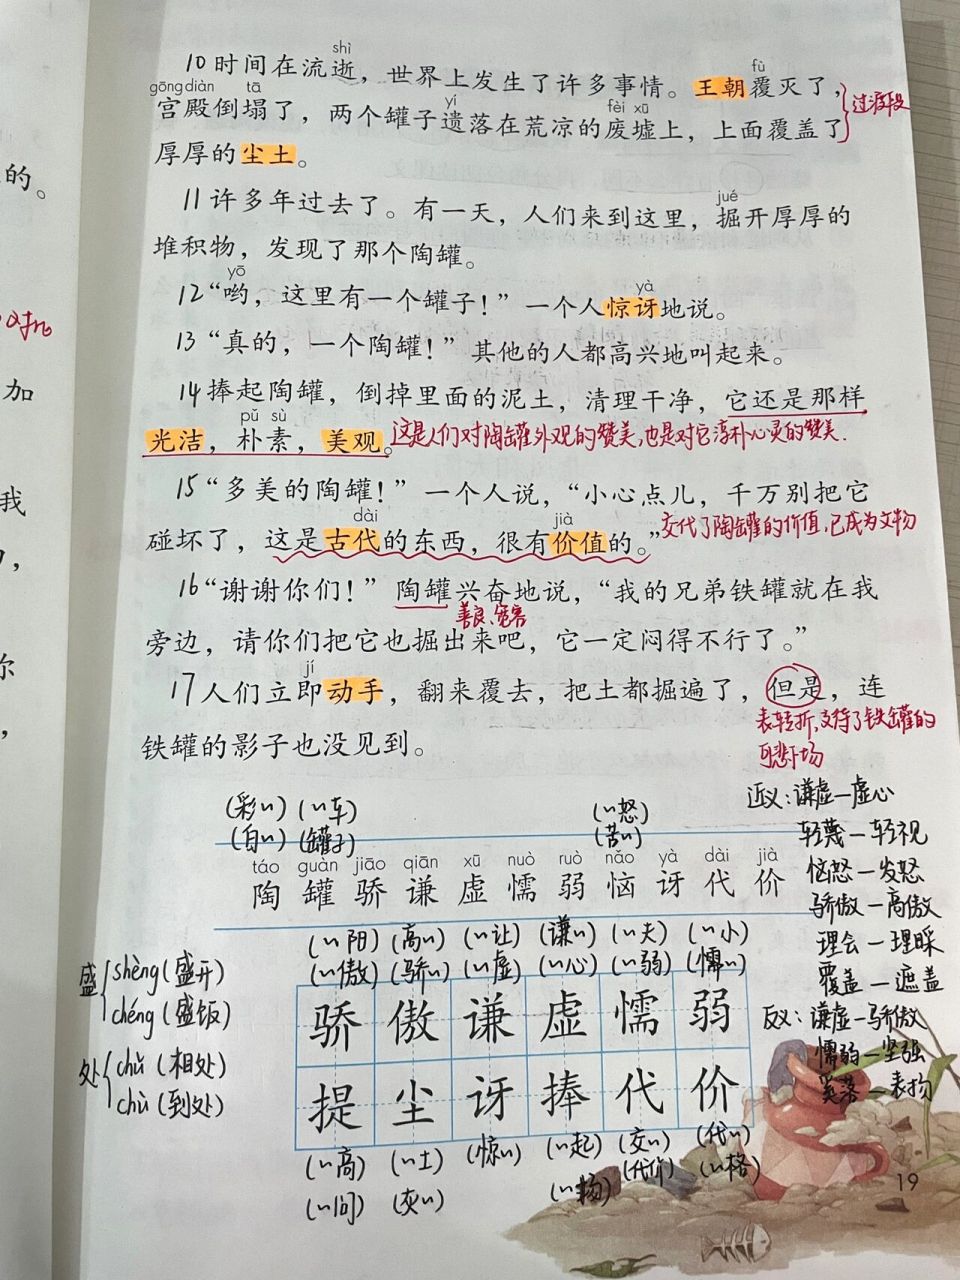 的。
加
我
，
尔
，
shì
10时间在流逝，世界上发生了许多事情。王朝覆灭了，
fù
gōng diàn tā
宫殿倒塌了，两个罐子遗落在荒凉的废墟上，上面覆盖了
yí fèi xū
过渡段
厚厚的尘土。
11许多年过去了。有一天，人们来到这里，掘开厚厚的
jué
堆积物，发现了那个陶罐。
yō
12“哟，这里有一个罐子！”一个人惊讶地说。
yà
13“真的，一个陶罐！”其他的人都高兴地叫起来。
14捧起陶罐，倒掉里面的泥土，清理干净，它还是那样
pǔ sù
光洁，朴素，美观。
这是人们对陶罐外观的赞美,也是对它淳朴心灵的赞美.
15“多美的陶罐！”一个人说，“小心点儿，千万别把它
dài jià
碰坏了，这是古代的东西，很有价值的。”
交代了陶罐的价值,已成为文物
16“谢谢你们！”陶罐兴奋地说，“我的兄弟铁罐就在我
善良、宽容
旁边，请你们把它也掘出来吧，它一定闷得不行了。”
jí
17人们立即动手，翻来覆去，把土都掘遍了，但是，连
表转折,交待了铁罐的
可悲下场
铁罐的影子也没见到。
(彩〃) (〃车) (〃怒)
(白〃) (罐子) (苦〃)
táo guàn jiāo qiān xū nuò ruò nǎo yà dài jià
陶 罐 骄 谦 虚 懦 弱 恼 讶 代 价
(〃阳) (高〃) (〃让) (谦〃) (〃夫) (〃小)
(〃傲) (骄〃) (〃虚) (〃心) (〃弱) (懦〃)
骄 傲 谦 虚 懦 弱
提 尘 讶 捧 代 价
(〃高) (〃土) (惊〃) (〃起) (交〃) (代〃)
(〃问) (灰〃) (〃场) (代价) (〃格)
盛 shèng (盛开)
chéng (盛饭)
处 chǔ (相处)
chù (到处)
近义:谦虚—虚心
轻蔑—轻视
恼怒—发怒
骄傲—高傲
理会—理睬
覆盖—遮盖
反义:谦虚—骄傲
懦弱—坚强
奚落—表扬
19